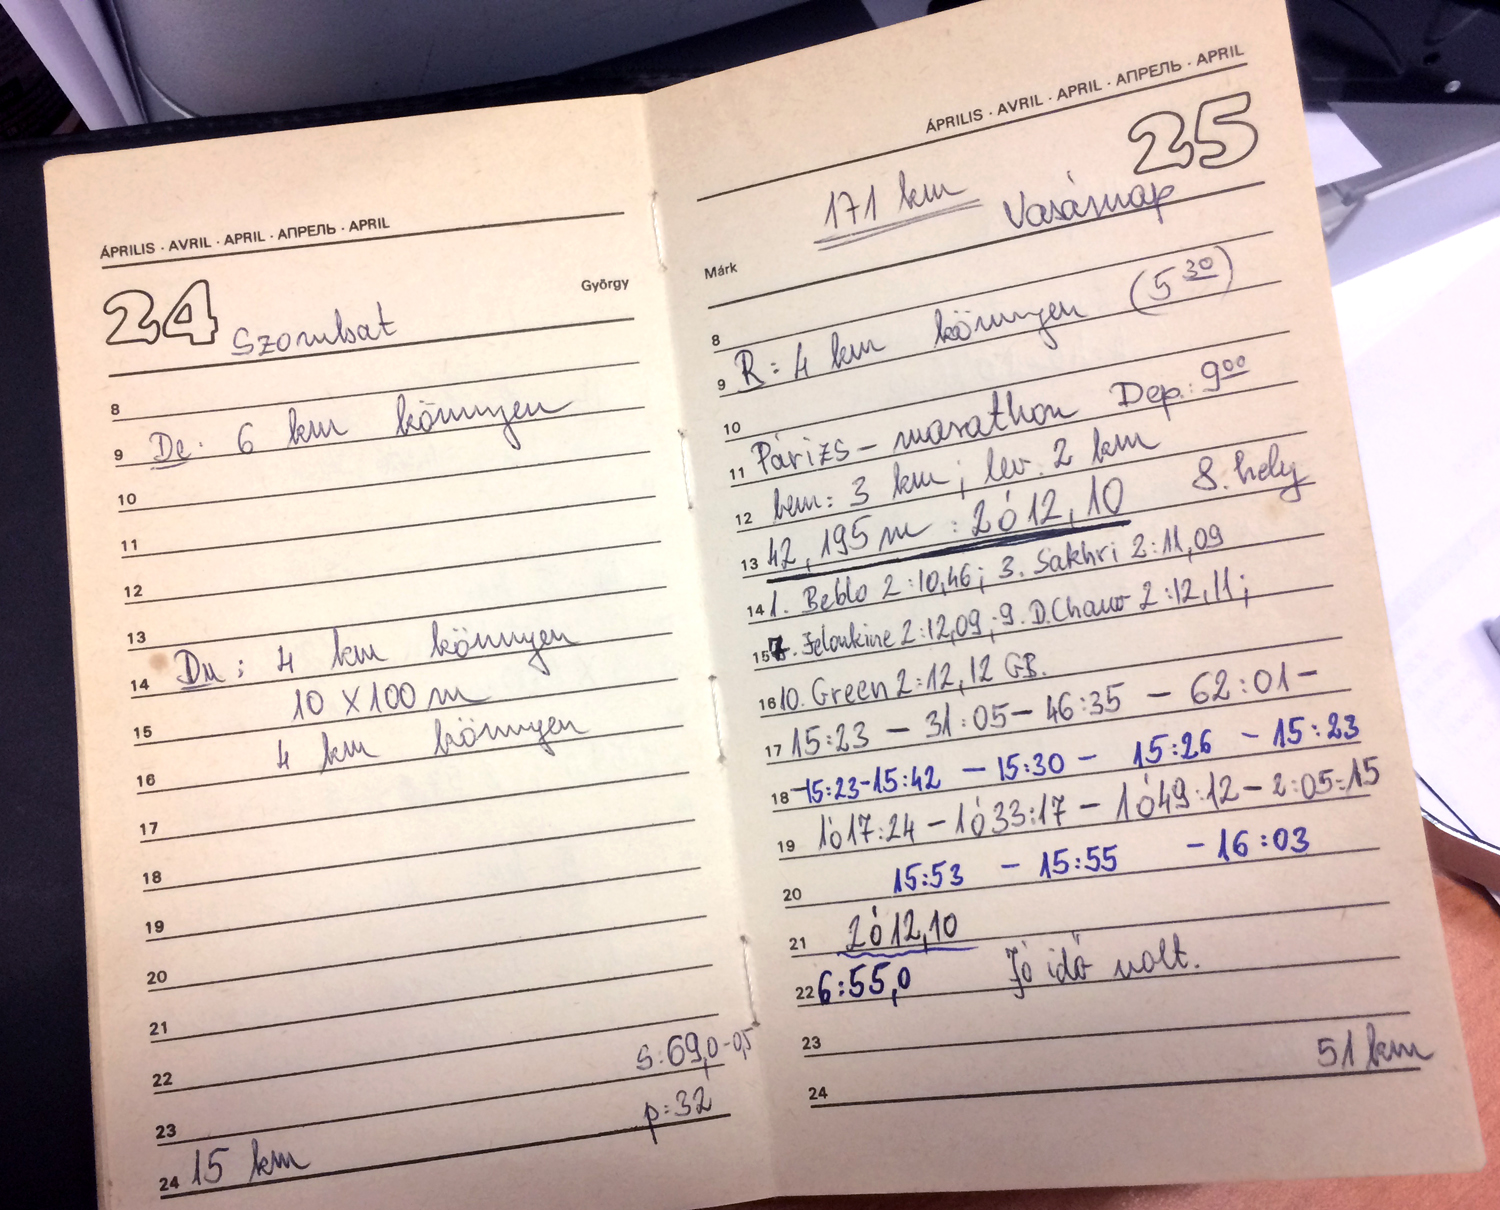 ÁPRILIS · AVRIL · APRIL · АПРЕЛЬ · APRIL
24 Szombat
György
8
9 De: 6 km könnyen
10
11
12
13
14 Du: 4 km könnyen
15 10 X 100 m
16 4 km könnyen
17
18
19
20
21
22 s: 69,0 -0,5
23 p: 32
24 15 km
ÁPRILIS · AVRIL · APRIL · АПРЕЛЬ · APRIL
25
171 km Vasárnap
Márk
8
9 R: 4 km könnyen (5 30)
10
11 Párizs - marathon Dep: 9 00
12 bem: 3 km; lev. 2 km
13 42,195 m : 2ó12,10 8. hely
14 1. Beblo 2:10,46; 3. Sakhri 2:11,09
15 7. 2:12,09; 9. D.Chauv 2:12,11;
16 10. Green 2:12,12 GB.
17 15:23 - 31:05 - 46:35 - 62:01 -
18 -15:23-15:42 - 15:30 - 15:26 - 15:23
19 1ó17:24 - 1ó33:17 - 1ó49:12 - 2:05:15
20 15:53 - 15:55 - 16:03
21 2ó12,10
22 6:55,0 Jó idő volt.
23
51 km
24